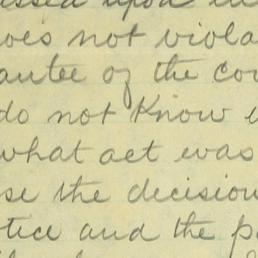 upon
oes not viola
antee of the co
do not know
what act was
se the decision
tice and the p